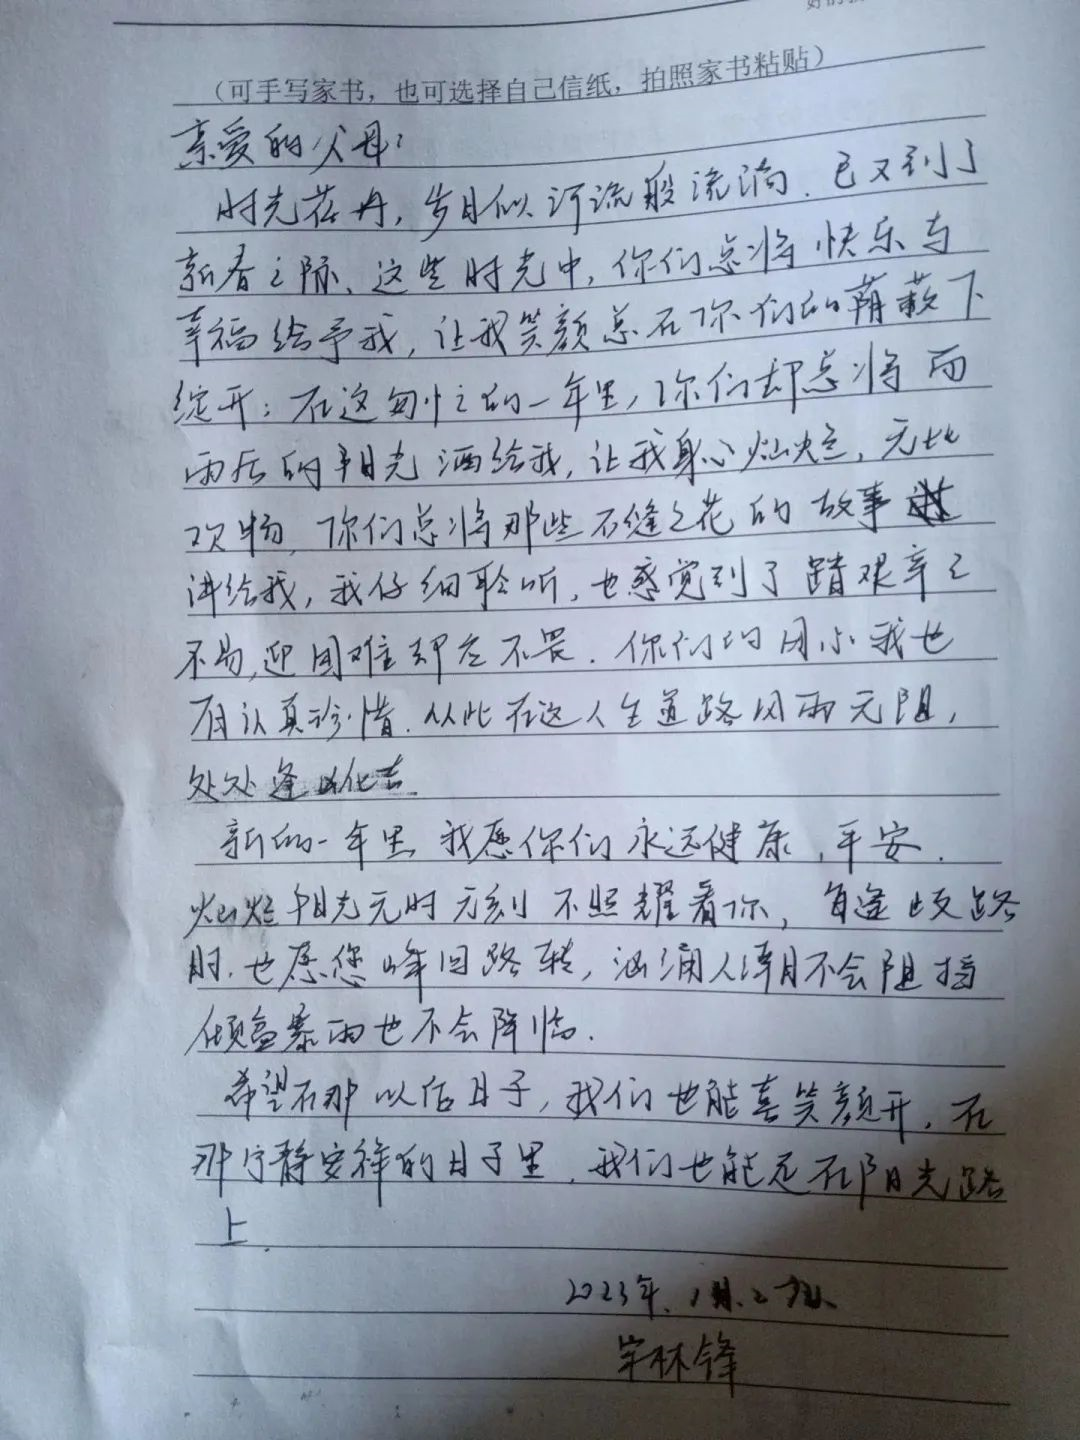 （可手写家书，也可选择自己信纸，拍照家书粘贴）
亲爱的父母：
时光荏苒，岁月似河流般流淌．已又到了
新春之际、这些时光中，你们总将快乐与
幸福给予我，让我笑颜总在你们的荫蔽下
绽开；在这匆忙的一年里，你们却总将
雨后的阳光洒给我，让我身心灿烂，无比
欢畅，你们总将那些石缝之花的故事
讲给我，我仔细聆听，也感觉到了踏艰辛之
不易，迎困难却应不畏．你们的用心我也
有认真珍惜．从此在这人生道路风雨无阻，
处处逢凶化吉
新的一年里我愿你们永远健康，平安．
灿烂阳光无时无刻不照耀着你，身逢歧路
时．也愿您峰回路转，汹涌人潮不会阻挡
倾盆暴雨也不会降临．
希望在那以后日子，我们也能喜笑颜开．在
那宁静安祥的日子里．我们也能走在阳光路
上．
2023年．1月．
林锋